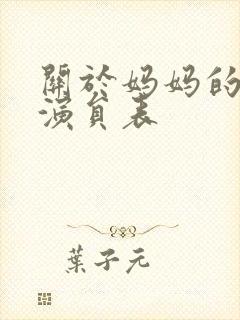 關於妈妈的
演員表
葉子元